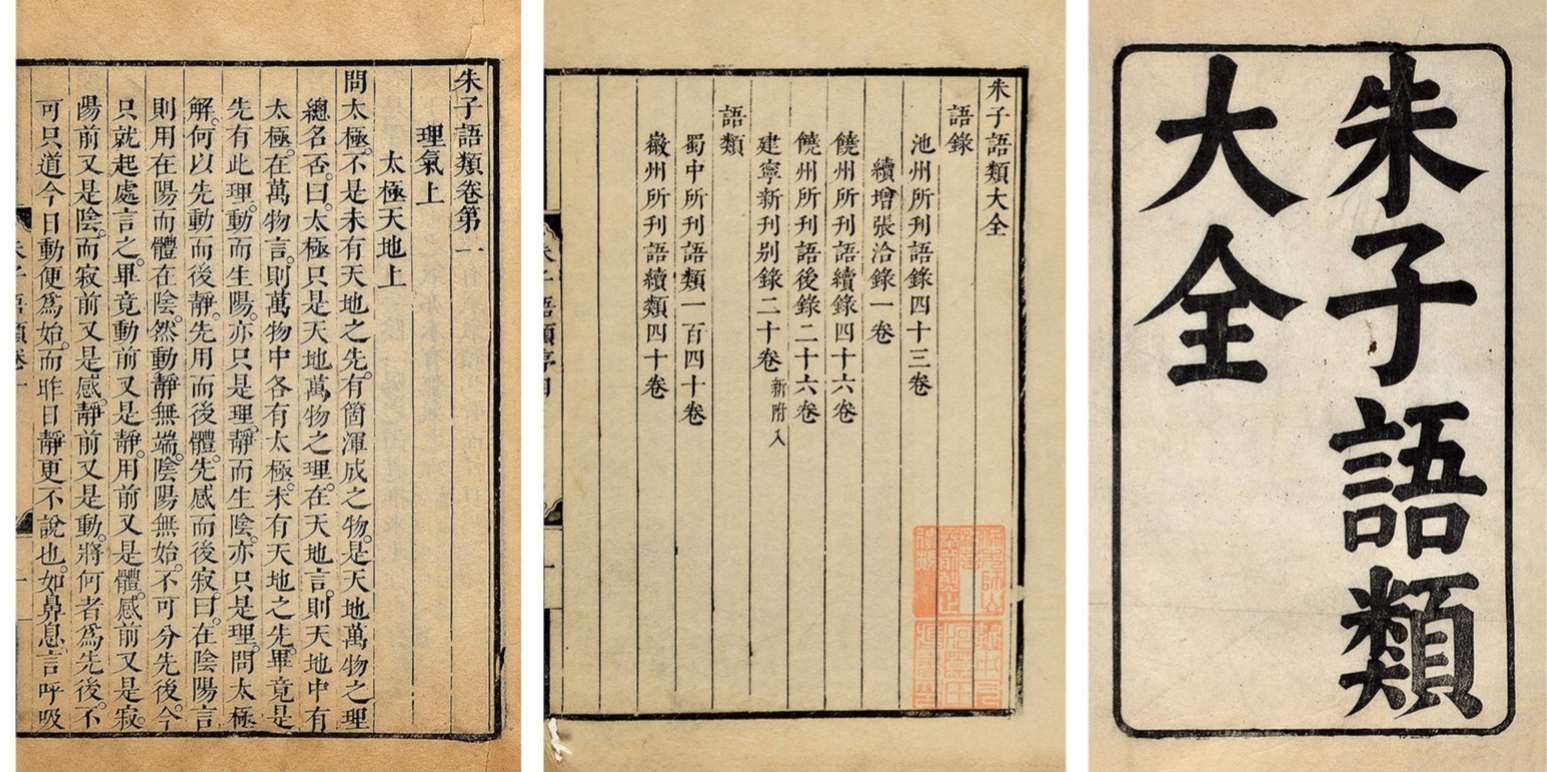 朱子語類
大全
朱子語類大全
語錄
池州所刊語錄四十三卷
續增張洽錄一卷
饒州所刊語續錄四十六卷
饒州所刊語後錄二十六卷
建寧新刊別錄二十卷新附入
語類
蜀中所刊語類一百四十卷
徽州所刊語續類四十卷
朱子語類卷第一
理氣上
太極天地上
問太極不是未有天地之先。有箇渾成之物。是天地萬物之理
總名否。曰。太極只是天地萬物之理。在天地言。則天地中有
太極。在萬物言。則萬物中各有太極。未有天地之先。畢竟是
先有此理。動而生陽。亦只是理。靜而生陰。亦只是理。問太極
解。何以先動而後靜。先用而後體。先感而後寂。曰。在陰陽言
則用在陽而體在陰。然動靜無端。陰陽無始。不可分先後。今
只就起處言之。畢竟動前又是靜。用前又是體。感前又是寂。
陽前又是陰。而寂前又是感。靜前又是動。將何者為先後。不
可只道今日動便爲始。而昨日靜更不說也。如鼻息。言呼吸